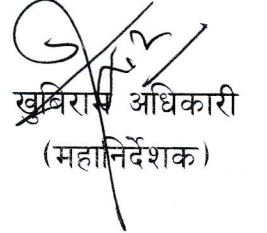 खुबिराम अधिकारी
(महानिर्देशक)